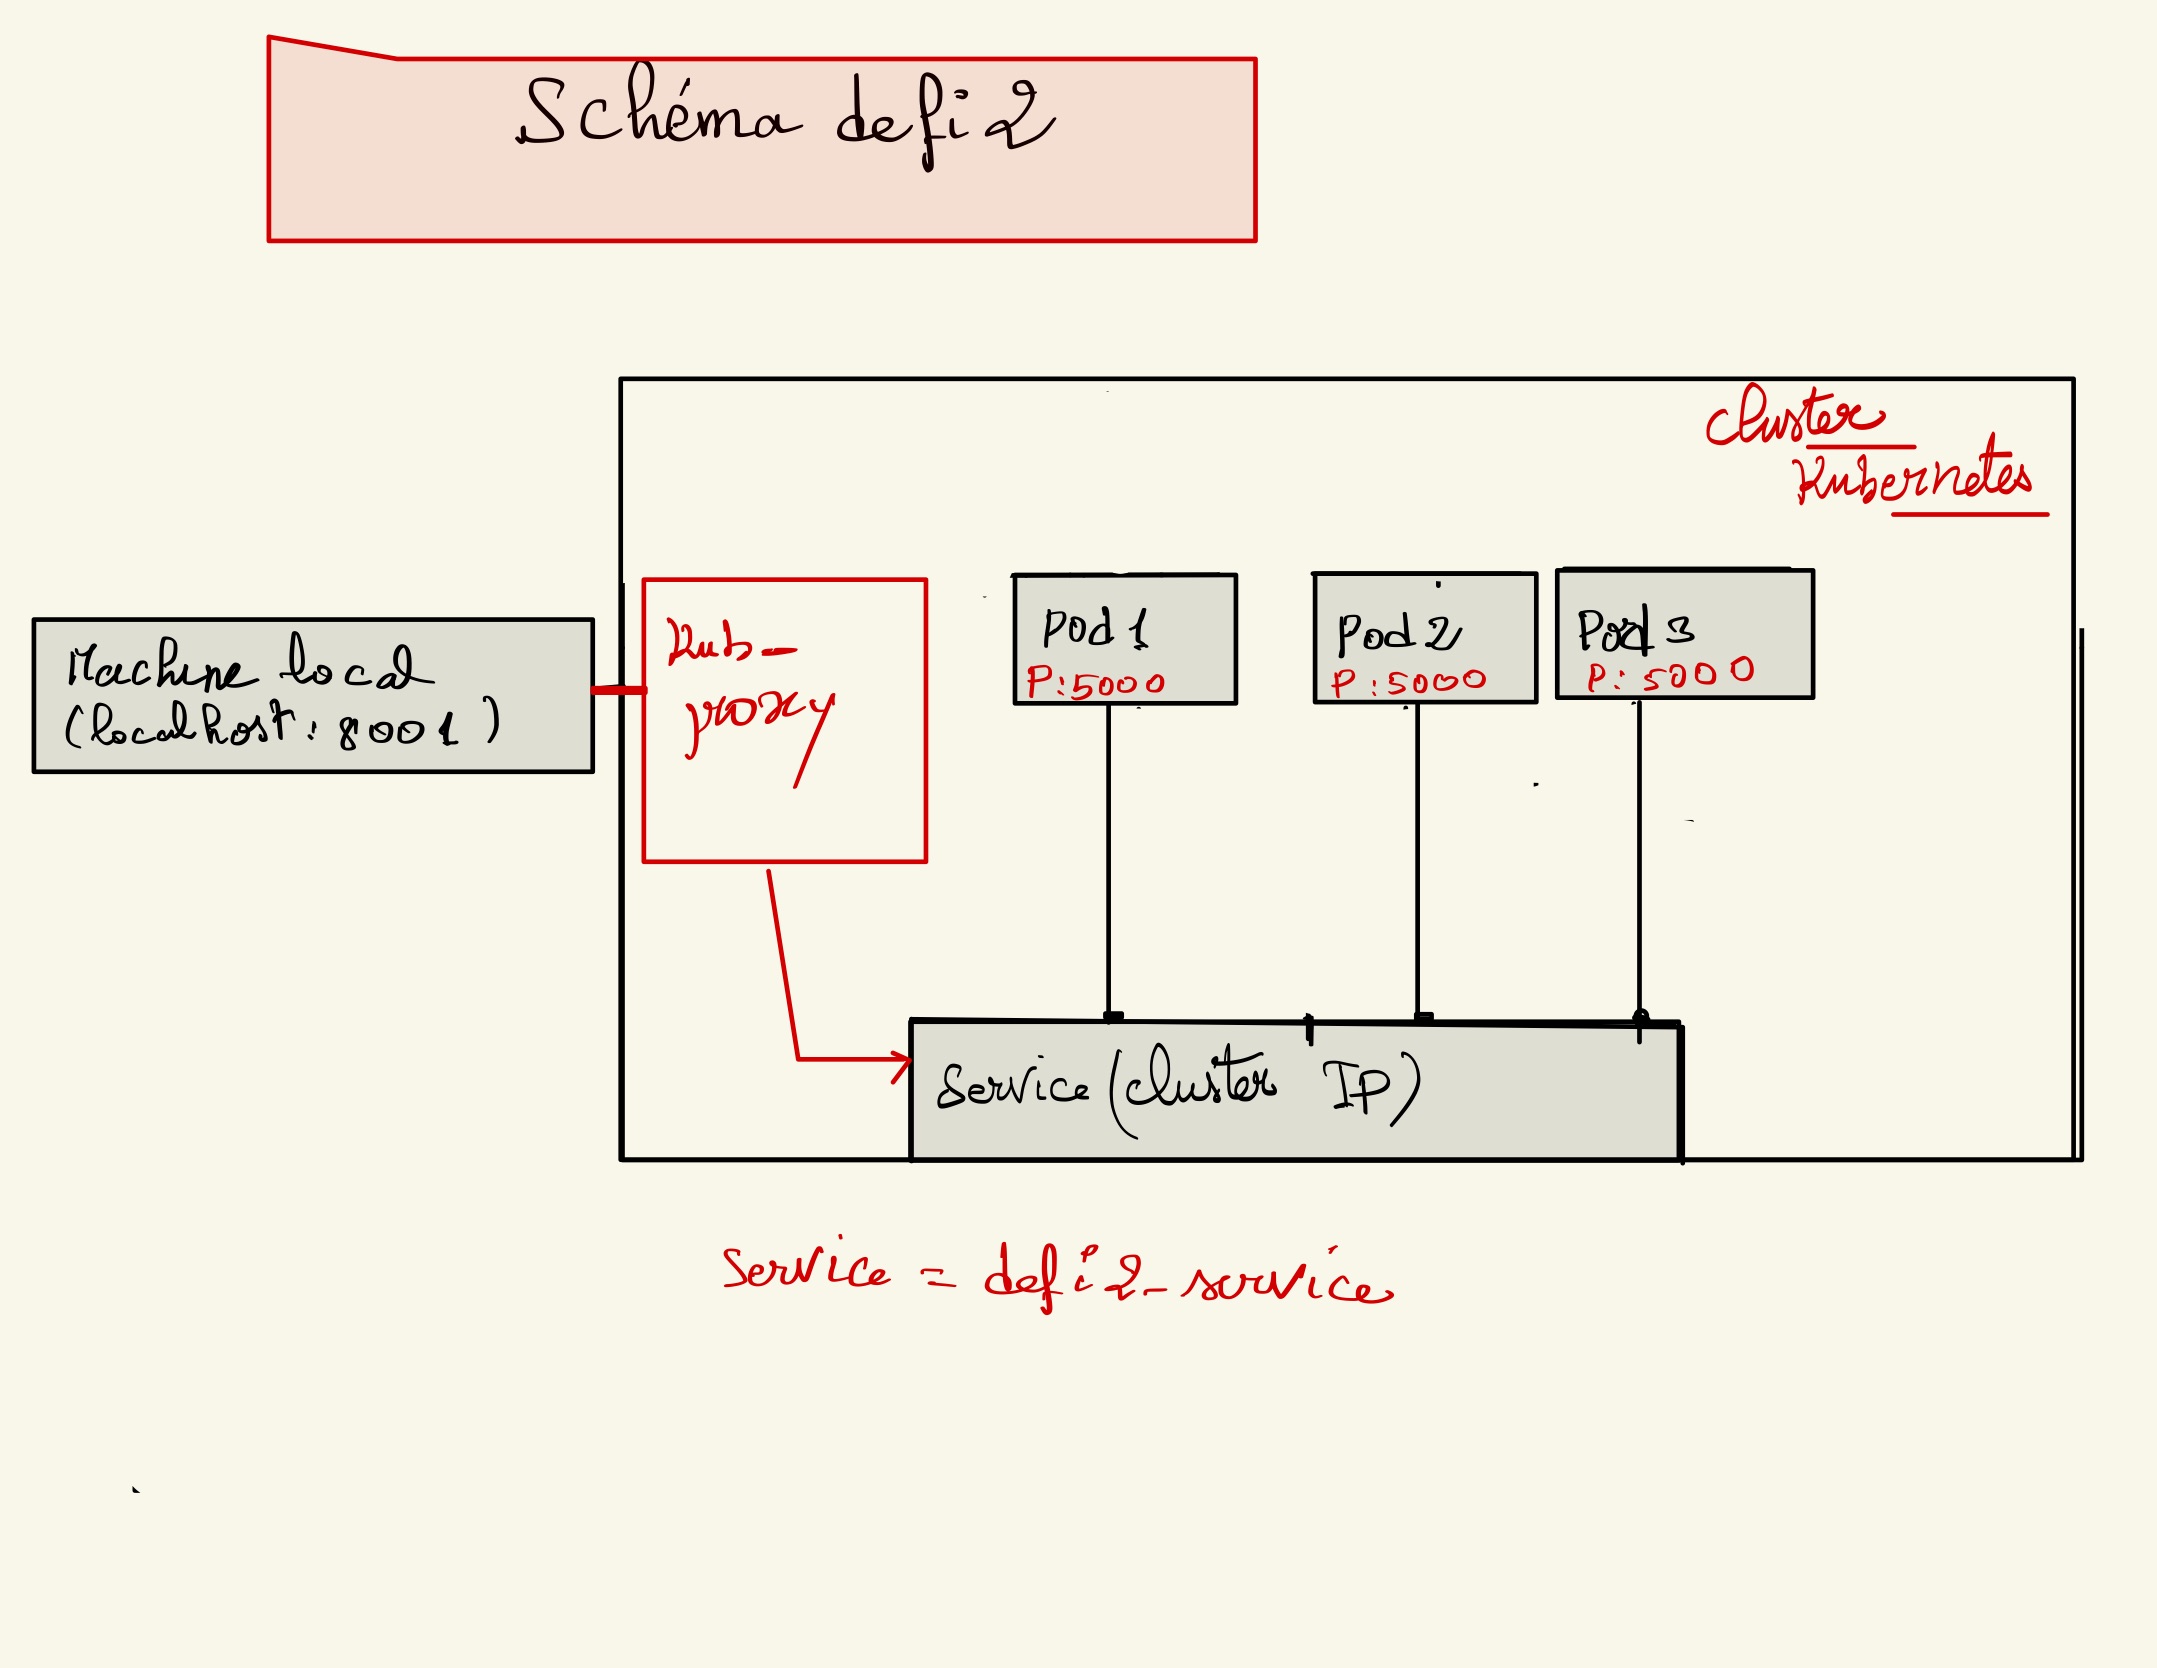 Schéma defi 2
Cluster
Kubernetes
Machine local
(localhost: 8001)
Kub-
proxy
Pod 1
P:5000
Pod 2
P:5000
Pod 3
P:5000
Service (Cluster IP)
Service = defi2-service